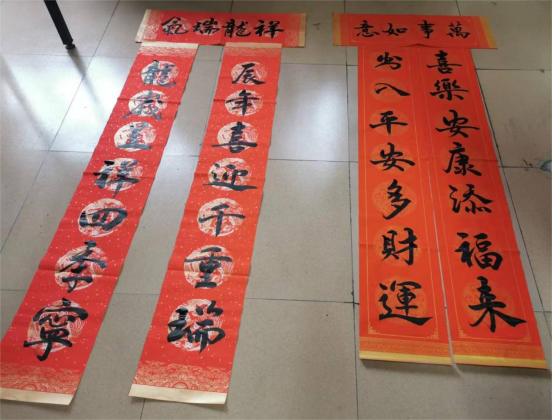 萬事如意
喜樂安康添福來
出入平安多財運
祥龍瑞氣
辰年喜迎千重瑞
龍歲呈祥四季寧